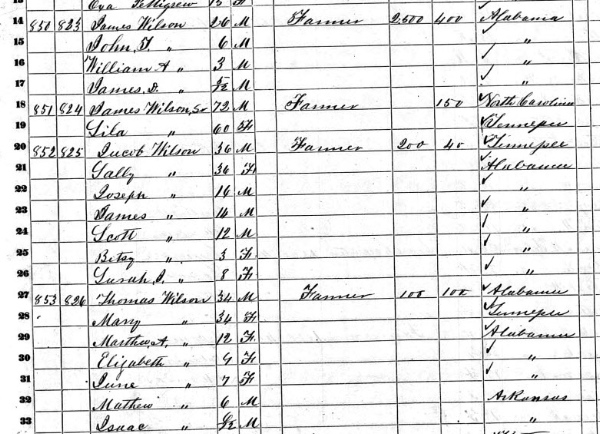 13 Eva Pettigrew 13 F
14 850 823 James Wilson 26 M Farmer 2,500 400 Alabama
15 John, F " 6 M "
16 William A " 3 M
17 James, D. " ½ M "
18 851 824 James Wilson, Sr 72 M Farmer 150 North Carolina
19 Lila " 60 F Tennessee
20 852 825 Jacob Wilson 36 M Farmer 200 40 Tennessee
21 Sally " 36 F Alabama
22 Joseph " 16 M "
23 James " 14 M "
24 Scott " 12 M "
25 Betsy " 3 F
26 Sarah, J. " 8 F "
27 853 826 Thomas Wilson 34 M Farmer 100 100 Alabama
28 Mary " 34 F Tennessee
29 Martha, A, " 12 F Alabama
30 Elizabeth " 9 F "
31 June " 7 F "
32 Mathew " 6 M Arkansas
33 Isaac " M "